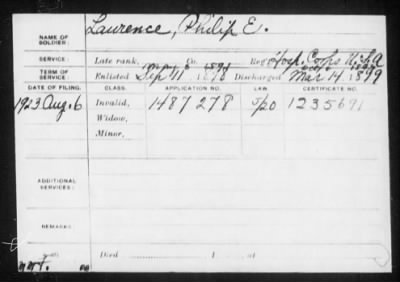 Laurence, Philip E.
NAME OF SOLDIER:
SERVICE: Late rank, Co. Reg Hosp. Corps U.S.A
TERM OF SERVICE: Enlisted Sep 11 1898 Discharged Mar 14 1899
DATE OF FILING. CLASS. APPLICATION NO. LAW. CERTIFICATE NO.
1923 Aug. 6 Invalid, 1487 278 1235691
Widow,
Minor,
ADDITIONAL SERVICES:
REMARKS:
Died